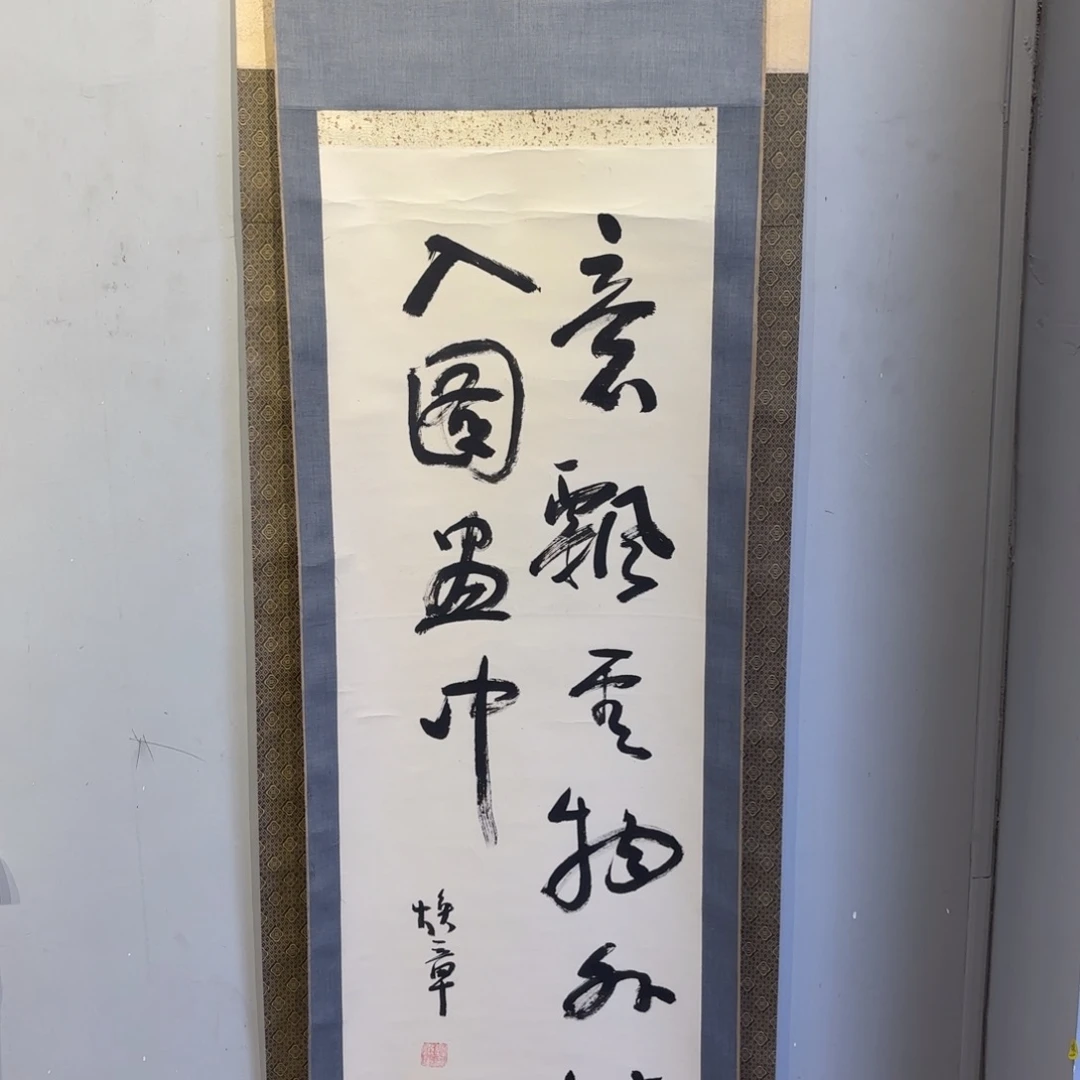 意飄雲物外
入圖畫中
煥章